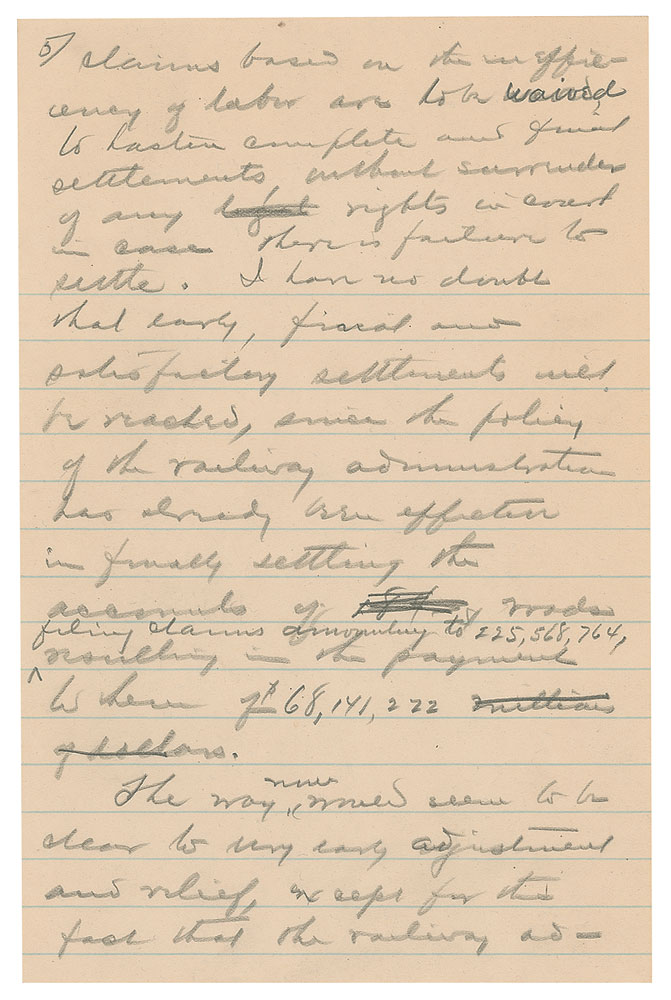 5/ Claims based on the ineffici-
ency of labor are to be waived,
to hasten complete and final
settlements, without surrender
of any legal rights in court
in case there is failure to
settle. I have no doubt
that early, final and
satisfactory settlements will
be reached, since the policy
of the railway administration
has already been effective
in finally settling the
accounts of roads
filing claims amounting to $225,568,764,
resulting in the payment
to them of $68,141,222 millions
of dollars.
The way, now, would seem to be
clear to very early adjustment
and relief, except for the
fact that the railway ad-